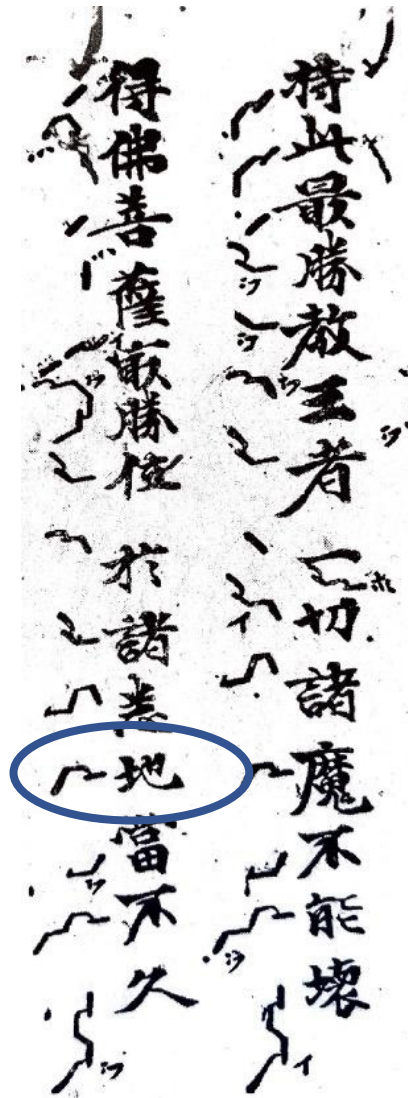 持此最勝教王者 一切諸魔不能壞
得佛菩薩㝡勝位 於諸悉地當不久